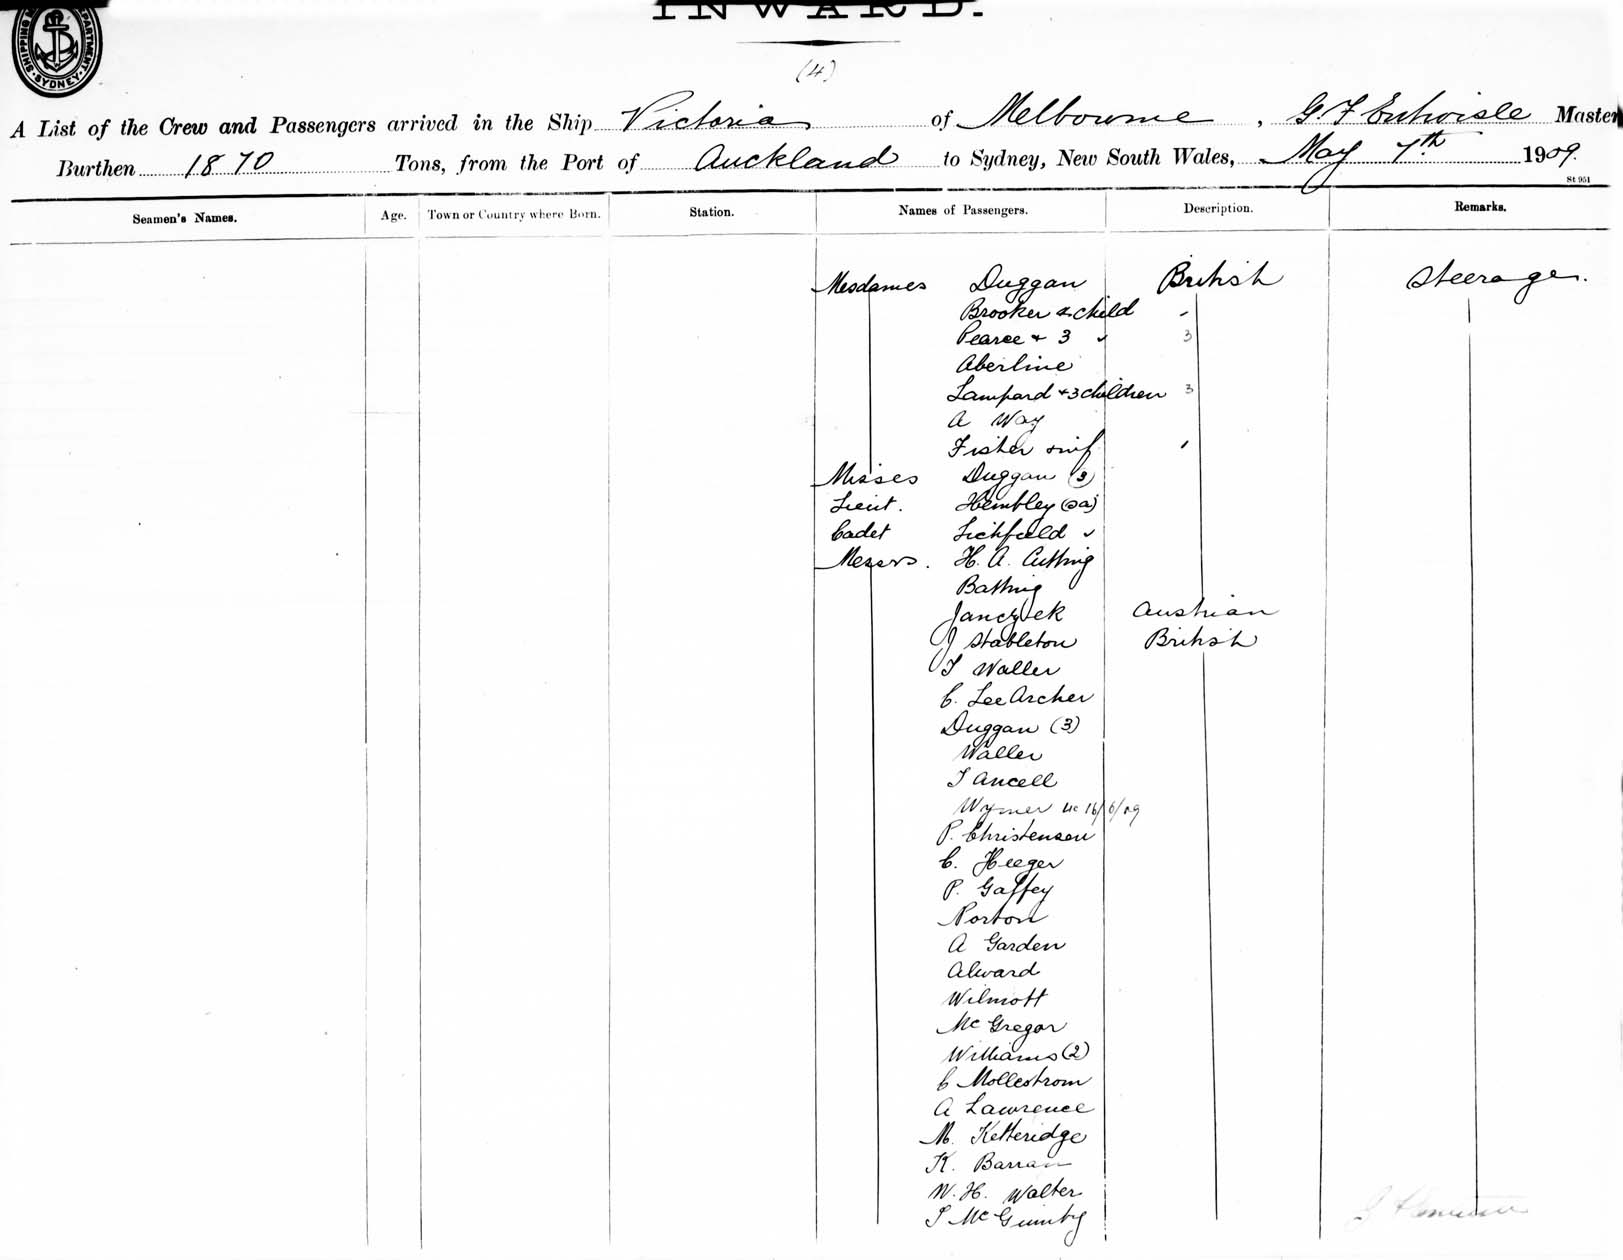 INWARD.
SHIPPING DEPARTMENT. SYDNEY.
(4)
A List of the Crew and Passengers arrived in the Ship Victoria of Melbourne, G. F. Entwisle Master
Burthen 1870 Tons, from the Port of Auckland to Sydney, New South Wales, May 7th 1909.
St 951
Seamen's Names. Age. Town or Country where Born. Station. Names of Passengers. Description. Remarks.
Mesdames Duggan British Steerage.
Brooker & child
Pearce + 3 3
Aberline
Lampard + 3 children 3
A Way
Fisher & inf
Misses Duggan (3)
Lieut. Hembley (SA)
Cadet Lichfield
Messrs. H. A. Cutting
Batting
Janczek Austrian
J Stableton British
T Waller
C. Lee Archer
Duggan (3)
Waller
T Ancell
Wymer 16/6/09
P. Christensen
C. Heeger
P. Gaffey
Norton
A Garden
Alward
Wilmott
McGregor
Williams (2)
C Mollestrom
A Lawrence
M. Ketteridge
K. Barran
W. H. Walter